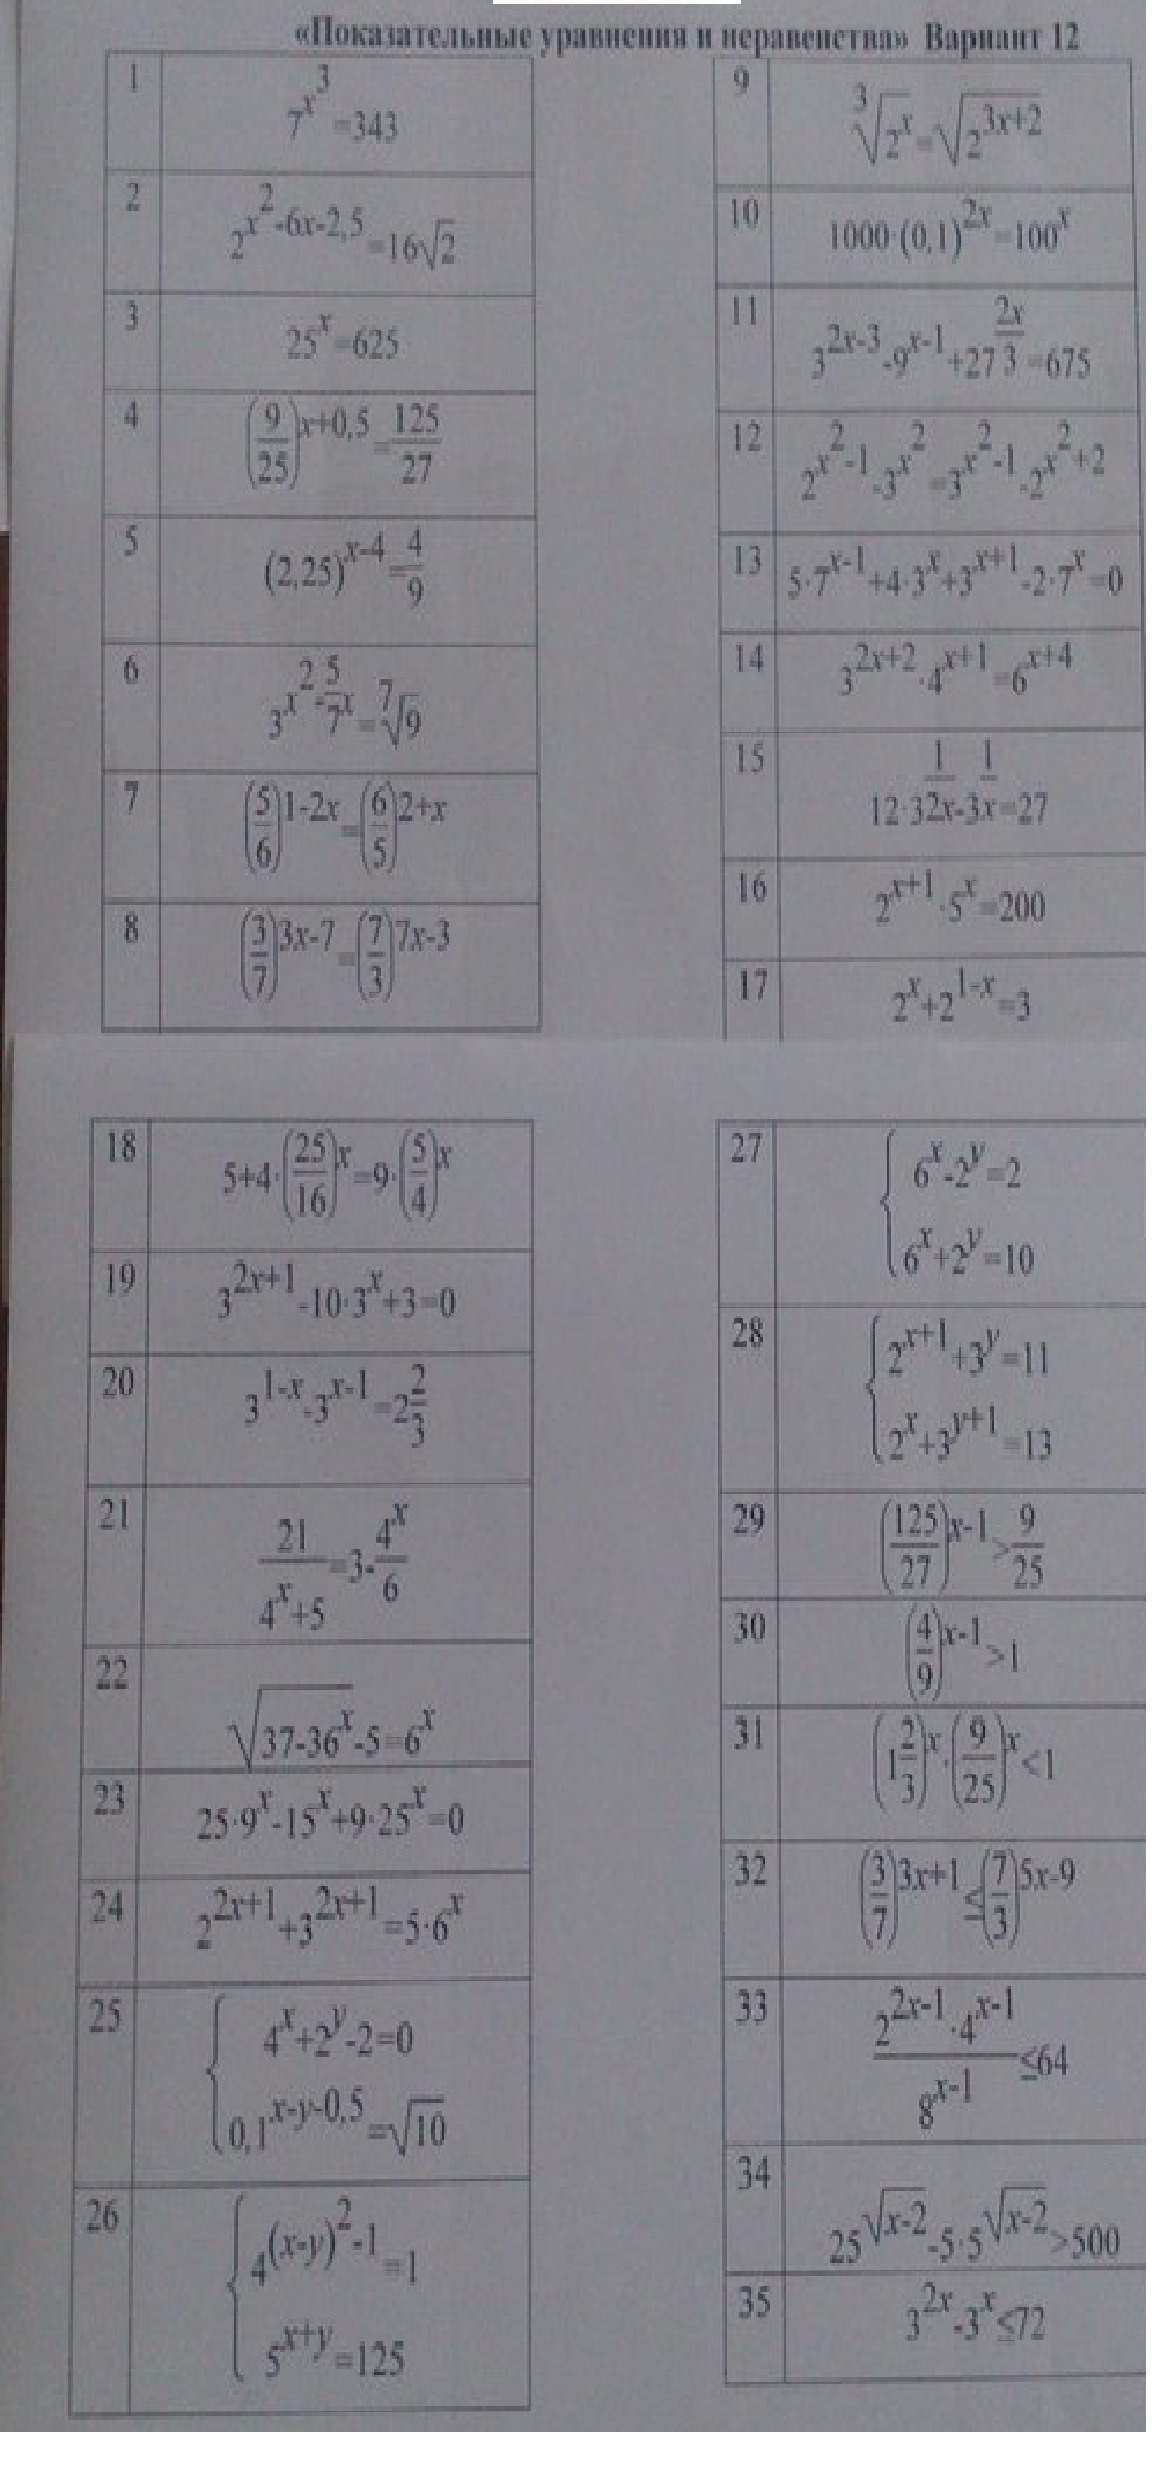 «Показательные уравнения и неравенства» Вариант 12
1 7^{x^3}=343
2 2^{x^2-6x-2,5}=16√2
3 25^x=625
4 (9/25)^{x+0,5}=125/27
5 (2,25)^{x-4}=4/9
6 3^{x^2-5/7x}=⁷√9
7 (5/6)^{1-2x}=(6/5)^{2+x}
8 (3/7)^{3x-7}=(7/3)^{7x-3}
9 ³√(2^x)=√(2^{3x+2})
10 1000·(0,1)^{2x}=100^x
11 3^{2x-3}-9^{x-1}+27^{2x/3}=675
12 2^{x^2-1}-3^{x^2}=3^{x^2-1}-2^{x^2+2}
13 5·7^{x-1}+4·3^x+3^{x+1}-2·7^x=0
14 3^{2x+2}·4^{x+1}=6^{x+4}
15 12·3^{1/2x}-3^{1/x}=27
16 2^{x+1}·5^x=200
17 2^x+2^{1-x}=3
18 5+4·(25/16)^x=9·(5/4)^x
19 3^{2x+1}-10·3^x+3=0
20 3^{1-x}-3^{x-1}=2 2/3
21 21/(4^x+5)=3-4^x/6
22 √(37-36^x)-5=6^x
23 25·9^x-15^x+9·25^x=0
24 2^{2x+1}+3^{2x+1}=5·6^x
25 { 4^x+2^y-2=0
0,1^{x-y-0,5}=√10
26 { 4^{(x-y)^2-1}=1
5^{x+y}=125
27 { 6^x-2^y=2
6^x+2^y=10
28 { 2^{x+1}+3^y=11
2^x+3^{y+1}=13
29 (125/27)^{x-1}>9/25
30 (4/9)^{x-1}>1
31 (1 2/3)^x·(9/25)^x<1
32 (3/7)^{3x+1}≤(7/3)^{5x-9}
33 2^{2x-1}·4^{x-1}/8^{x-1}≤64
34 25^{√(x-2)}-5·5^{√(x-2)}>500
35 3^{2x}-3^x≤72